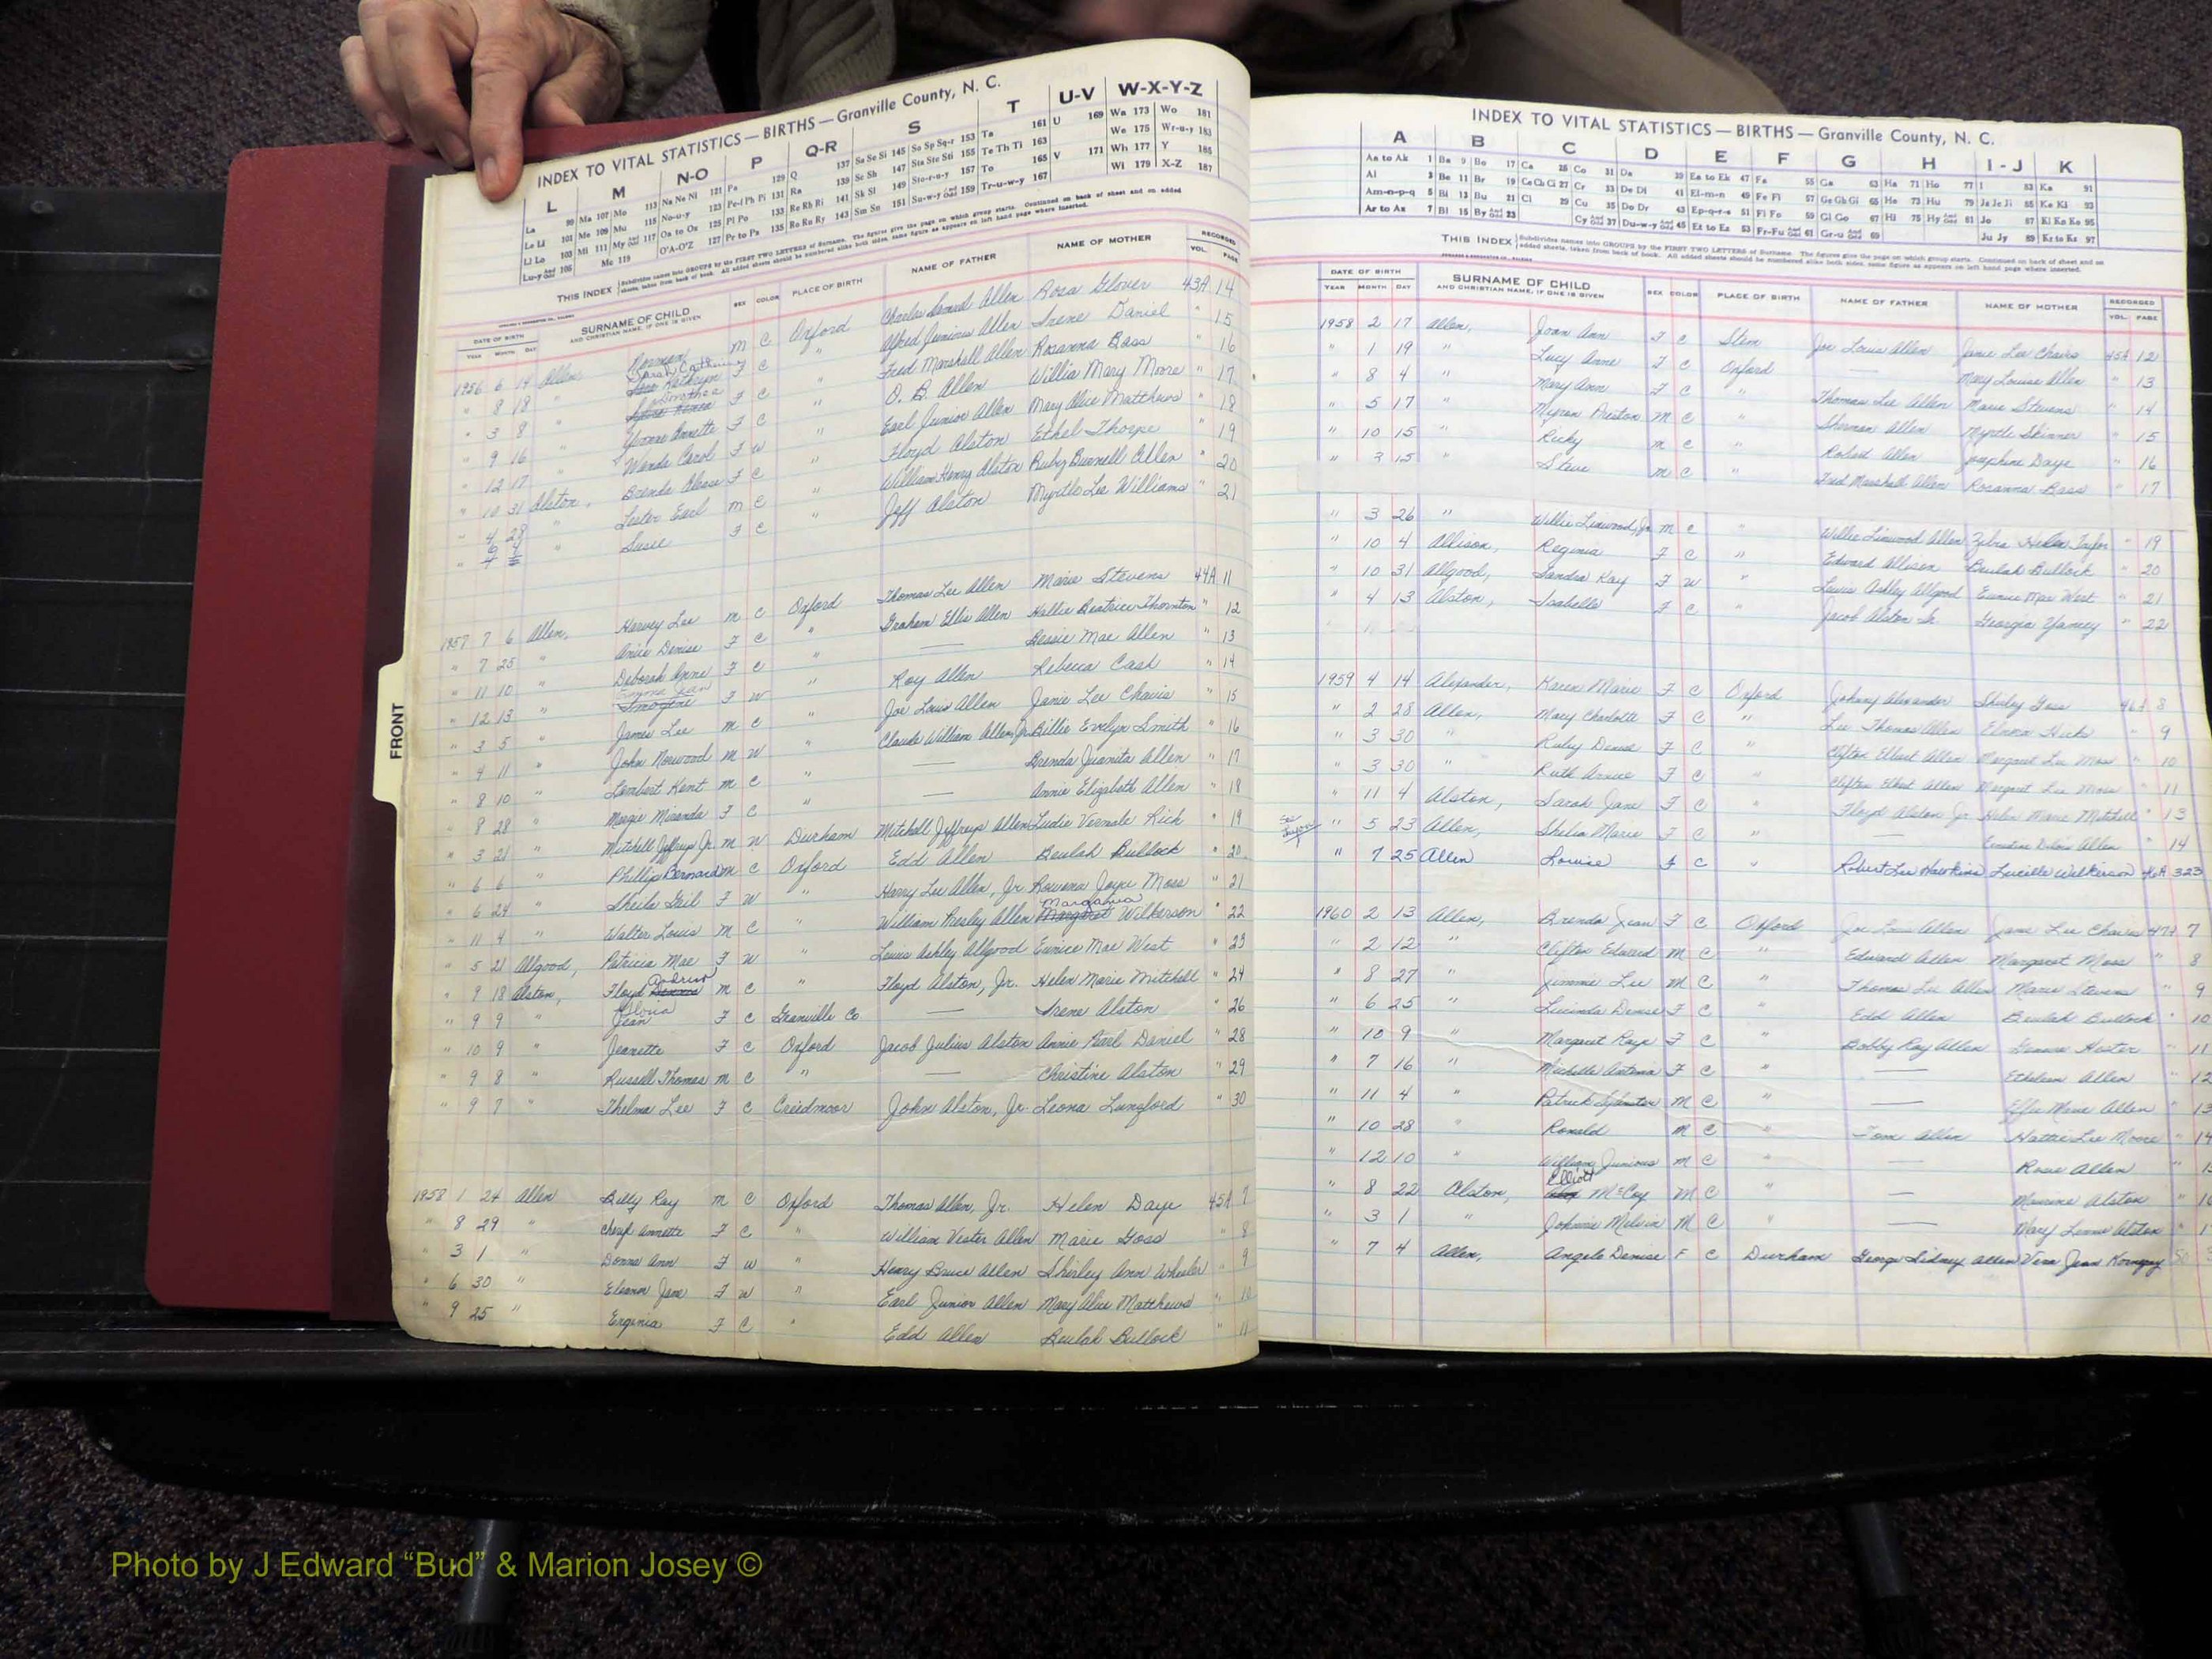 INDEX TO VITAL STATISTICS — BIRTHS — Granville County, N. C.
L M N-O P Q-R S T U-V W-X-Y-Z
La 99 Ma 107 Mo 113 Na Ne Ni 121 Pa 129 Q 137 Sa Se Si 145 So Sp Sq-r 153 Ta 161 U 169 Wa 173 Wo 181
Le Li 101 Me 109 Mu 115 No-u-y 123 Pe-f Ph Pi 131 Ra 139 Sc Sh 147 Sta Ste Sti 155 Te Th Ti 163 We 175 Wr-u-y 183
Ll Lo 103 Mi 111 My And Odd 117 Oa to Oz 125 Pl Po 133 Re Rh Ri 141 Sk Sl 149 Sto-r-u-y 157 To 165 V 171 Wh 177 Y 185
Lu-y And Odd 105 Mc 119 O'A-O'Z 127 Pr to Ps 135 Ro Ru Ry 143 Sm Sn 151 Su-w-y And Odd 159 Tr-u-w-y 167 Wi 179 X-Z 187
THIS INDEX Subdivides names into GROUPS by the FIRST TWO LETTERS of Surname. The figures give the page on which group starts. Continued on back of sheet and on added
sheets, taken from back of book. All added sheets should be numbered alike both sides, same figure as appears on left hand page where inserted.
DATE OF BIRTH SURNAME OF CHILD SEX COLOR PLACE OF BIRTH NAME OF FATHER NAME OF MOTHER RECORDED
YEAR MONTH DAY AND CHRISTIAN NAME, IF ONE IS GIVEN VOL. PAGE
1956 6 14 Allen, Norman M C Oxford Charles Samuel Allen Rosa Glover 43A 14
" 8 18 " Sarah Kathryn F C " Alfred Juninus Allen Irene Daniel " 15
" 3 8 " Dorothea F C " Fred Marshall Allen Rosanna Bass " 16
" 9 16 " Yvonne Annette F C " O. B. Allen Willia Mary Moore " 17
" 12 17 " Wanda Carol F W " Earl Junior Allen Mary Alice Matthews " 18
" 10 31 Alston, Brenda F C " Floyd Alston Ethel Thorpe " 19
" 4 23 " Lester Earl M C " William Henry Alston Ruby Burnell Allen " 20
" " Susie F C " Jeff Alston Myrtle Lee Williams " 21
1957 7 6 Allen, Harvey Lee M C Oxford Thomas Lee Allen Marie Stevens 44A 11
" 7 25 " Anice Denise F C " Graham Ellis Allen Hallie Beatrice Thornton " 12
" 11 10 " Deborah Anne F C " — Bessie Mae Allen " 13
" 12 13 " Imogene F W " Roy Allen Rebecca Cash " 14
" 3 5 " James Lee M C " Joe Louis Allen Janie Lee Chavis " 15
" 4 11 " John Norwood M W " Claude William Allen, Jr. Billie Evelyn Smith " 16
" 8 10 " Lambert Kent M C " — Brenda Juanita Allen " 17
" 8 28 " Margie Miranda F C " — Annie Elizabeth Allen " 18
" 3 21 " Mitchell Jeffreys Jr. M W Durham Mitchell Jeffreys Allen Ludie Vernale Rick " 19
" 6 6 " Phillip Bernard M C Oxford Edd Allen Beulah Bullock " 20
" 6 24 " Sheila Gail F W " Harry Lee Allen, Jr. Rowena Joyce Moss " 21
" 11 4 " Walter Louis M C " William Presley Allen Margaret Wilkerson " 22
" 5 21 Allgood, Patricia Mae F W " Louis Ashley Allgood Eunice Mae West " 23
" 9 18 Alston, Floyd M C " Floyd Alston, Jr. Helen Marie Mitchell " 24
" 9 9 " Jean F C Granville Co — Irene Alston " 26
" 10 9 " Jeanette F C Oxford Jacob Julius Alston Annie Pearl Daniel " 28
" 9 8 " Russell Thomas M C " — Christine Alston " 29
" 9 7 " Thelma Lee F C Creedmoor John Alston, Jr. Leona Lunsford " 30
1958 1 24 Allen Billy Ray M C Oxford Thomas Allen, Jr. Helen Daye 45A 7
" 8 29 " Cheryl Annette F C " William Vester Allen Marie Goss " 8
" 3 1 " Donna Ann F W " Henry Bruce Allen Shirley Ann Wheeler " 9
" 6 30 " Eleanor Jane F W " Earl Junior Allen Mary Alice Matthews " 10
" 9 25 " Erginia F C " Edd Allen Beulah Bullock " 11
FRONT
INDEX TO VITAL STATISTICS — BIRTHS — Granville County, N. C.
A B C D E F G H I-J K
Aa to Ak 1 Ba 9 Bo 17 Ca 25 Co 31 Da 39 Ea to Ek 47 Fa 55 Ga 63 Ha 71 Ho 77 I 83 Ka 91
Al 3 Be 11 Br 19 Ce Ch Ci 27 Cr 33 De Di 41 El-m-n 49 Fe Fi 57 Ge Gh Gi 65 He 73 Hu 79 Ja Je Ji 85 Ke Ki 93
Am-n-p-q 5 Bi 13 Bu 21 Cl 29 Cu 35 Do Dr 43 Ep-q-r-s 51 Fl Fo 59 Gl Go 67 Hi 75 Hy And Odd 81 Jo 87 Kl Kn Ko 95
Ar to Az 7 Bl 15 By And Odd 23 Cy And Odd 37 Du-w-y And Odd 45 Et to Ez 53 Fr-Fu And Odd 61 Gr-u And Odd 69 Ju Jy 89 Kr to Kz 97
THIS INDEX Subdivides names into GROUPS by the FIRST TWO LETTERS of Surname. The figures give the page on which group starts. Continued on back of sheet and on
added sheets, taken from back of book. All added sheets should be numbered alike both sides, same figure as appears on left hand page where inserted.
DATE OF BIRTH SURNAME OF CHILD SEX COLOR PLACE OF BIRTH NAME OF FATHER NAME OF MOTHER RECORDED
YEAR MONTH DAY AND CHRISTIAN NAME, IF ONE IS GIVEN VOL. PAGE
1958 2 17 Allen, Joan Ann F C Stem Joe Louis Allen Janie Lee Chavis 45A 12
" 1 19 " Lucy Anne F C Oxford — Mary Louise Allen " 13
" 8 4 " Mary Ann F C " Thomas Lee Allen Marie Stevens " 14
" 5 17 " Myron Preston M C " Sherman Allen Myrtle Skinner " 15
" 10 15 " Ricky M C " Robert Allen Josephine Daye " 16
" 3 15 " Steve M C " Fred Marshall Allen Rosanna Bass " 17
" 3 26 " Willie Linwood, Jr. M C " Willie Linwood Allen Zebra Helen " 19
" 10 4 Allison, Reginia F C " Edward Allison Beulah Bullock " 20
" 10 31 Allgood, Sandra Kay F W " Lewis Ashley Allgood Eunice Mae West " 21
" 4 13 Alston, Isabelle F C Jacob Alston Sr. Georgia Yancey " 22
1959 4 14 Alexander, Karen Marie F C Oxford Johnny Alexander Shirley Goss 46A 8
" 2 28 Allen, Mary Charlotte F C " Lee Thomas Allen Elnora Hicks " 9
" 3 30 " Ruby Denise F C " Clifton Elbert Allen Margaret Lee Moss " 10
" 3 30 " Ruth Annie F C Clifton Elbert Allen Margaret Lee Moss " 11
" 11 4 Alston, Sarah Jane F C " Floyd Alston Jr Helen Marie Mitchell " 13
See " 5 23 Allen, Shelia Marie F C " — Allen " 14
" 7 25 Allen Louise F C " Robert Lee Hawkins Lucille Wilkerson 46A 323
1960 2 13 Allen, Brenda Jean F C Oxford Joe Louis Allen Janie Lee Chavis 47A 7
" 2 12 " Clifton Edward M C " Edward Allen Margaret Moss " 8
" 8 27 " Jimmie Lee M C " Thomas Lee Allen Marie Stevens " 9
" 6 25 " Lucinda Denise F C " Edd Allen Beulah Bullock " 10
" 10 9 " Margaret Raye F C " Bobby Ray Allen Hester " 11
" 7 16 " Michelle Antonia F C " — Etheleen Allen " 12
" 11 4 " Patrick M C " — Effie Marie Allen " 13
" 10 28 " Ronald M C " Tom Allen Hattie Lee Moore " 14
" 12 10 " William Junious M C " — Rosie Allen "
" 8 22 Alston, Elliott McCoy M C " — Maurine Alston "
" 3 1 " Johnnie Melvin M C " — Mary Alston "
" 7 4 Allen, Angela Denise F C Durham George Sidney Allen Vera Jean Kornegay
Photo by J Edward “Bud” & Marion Josey ©